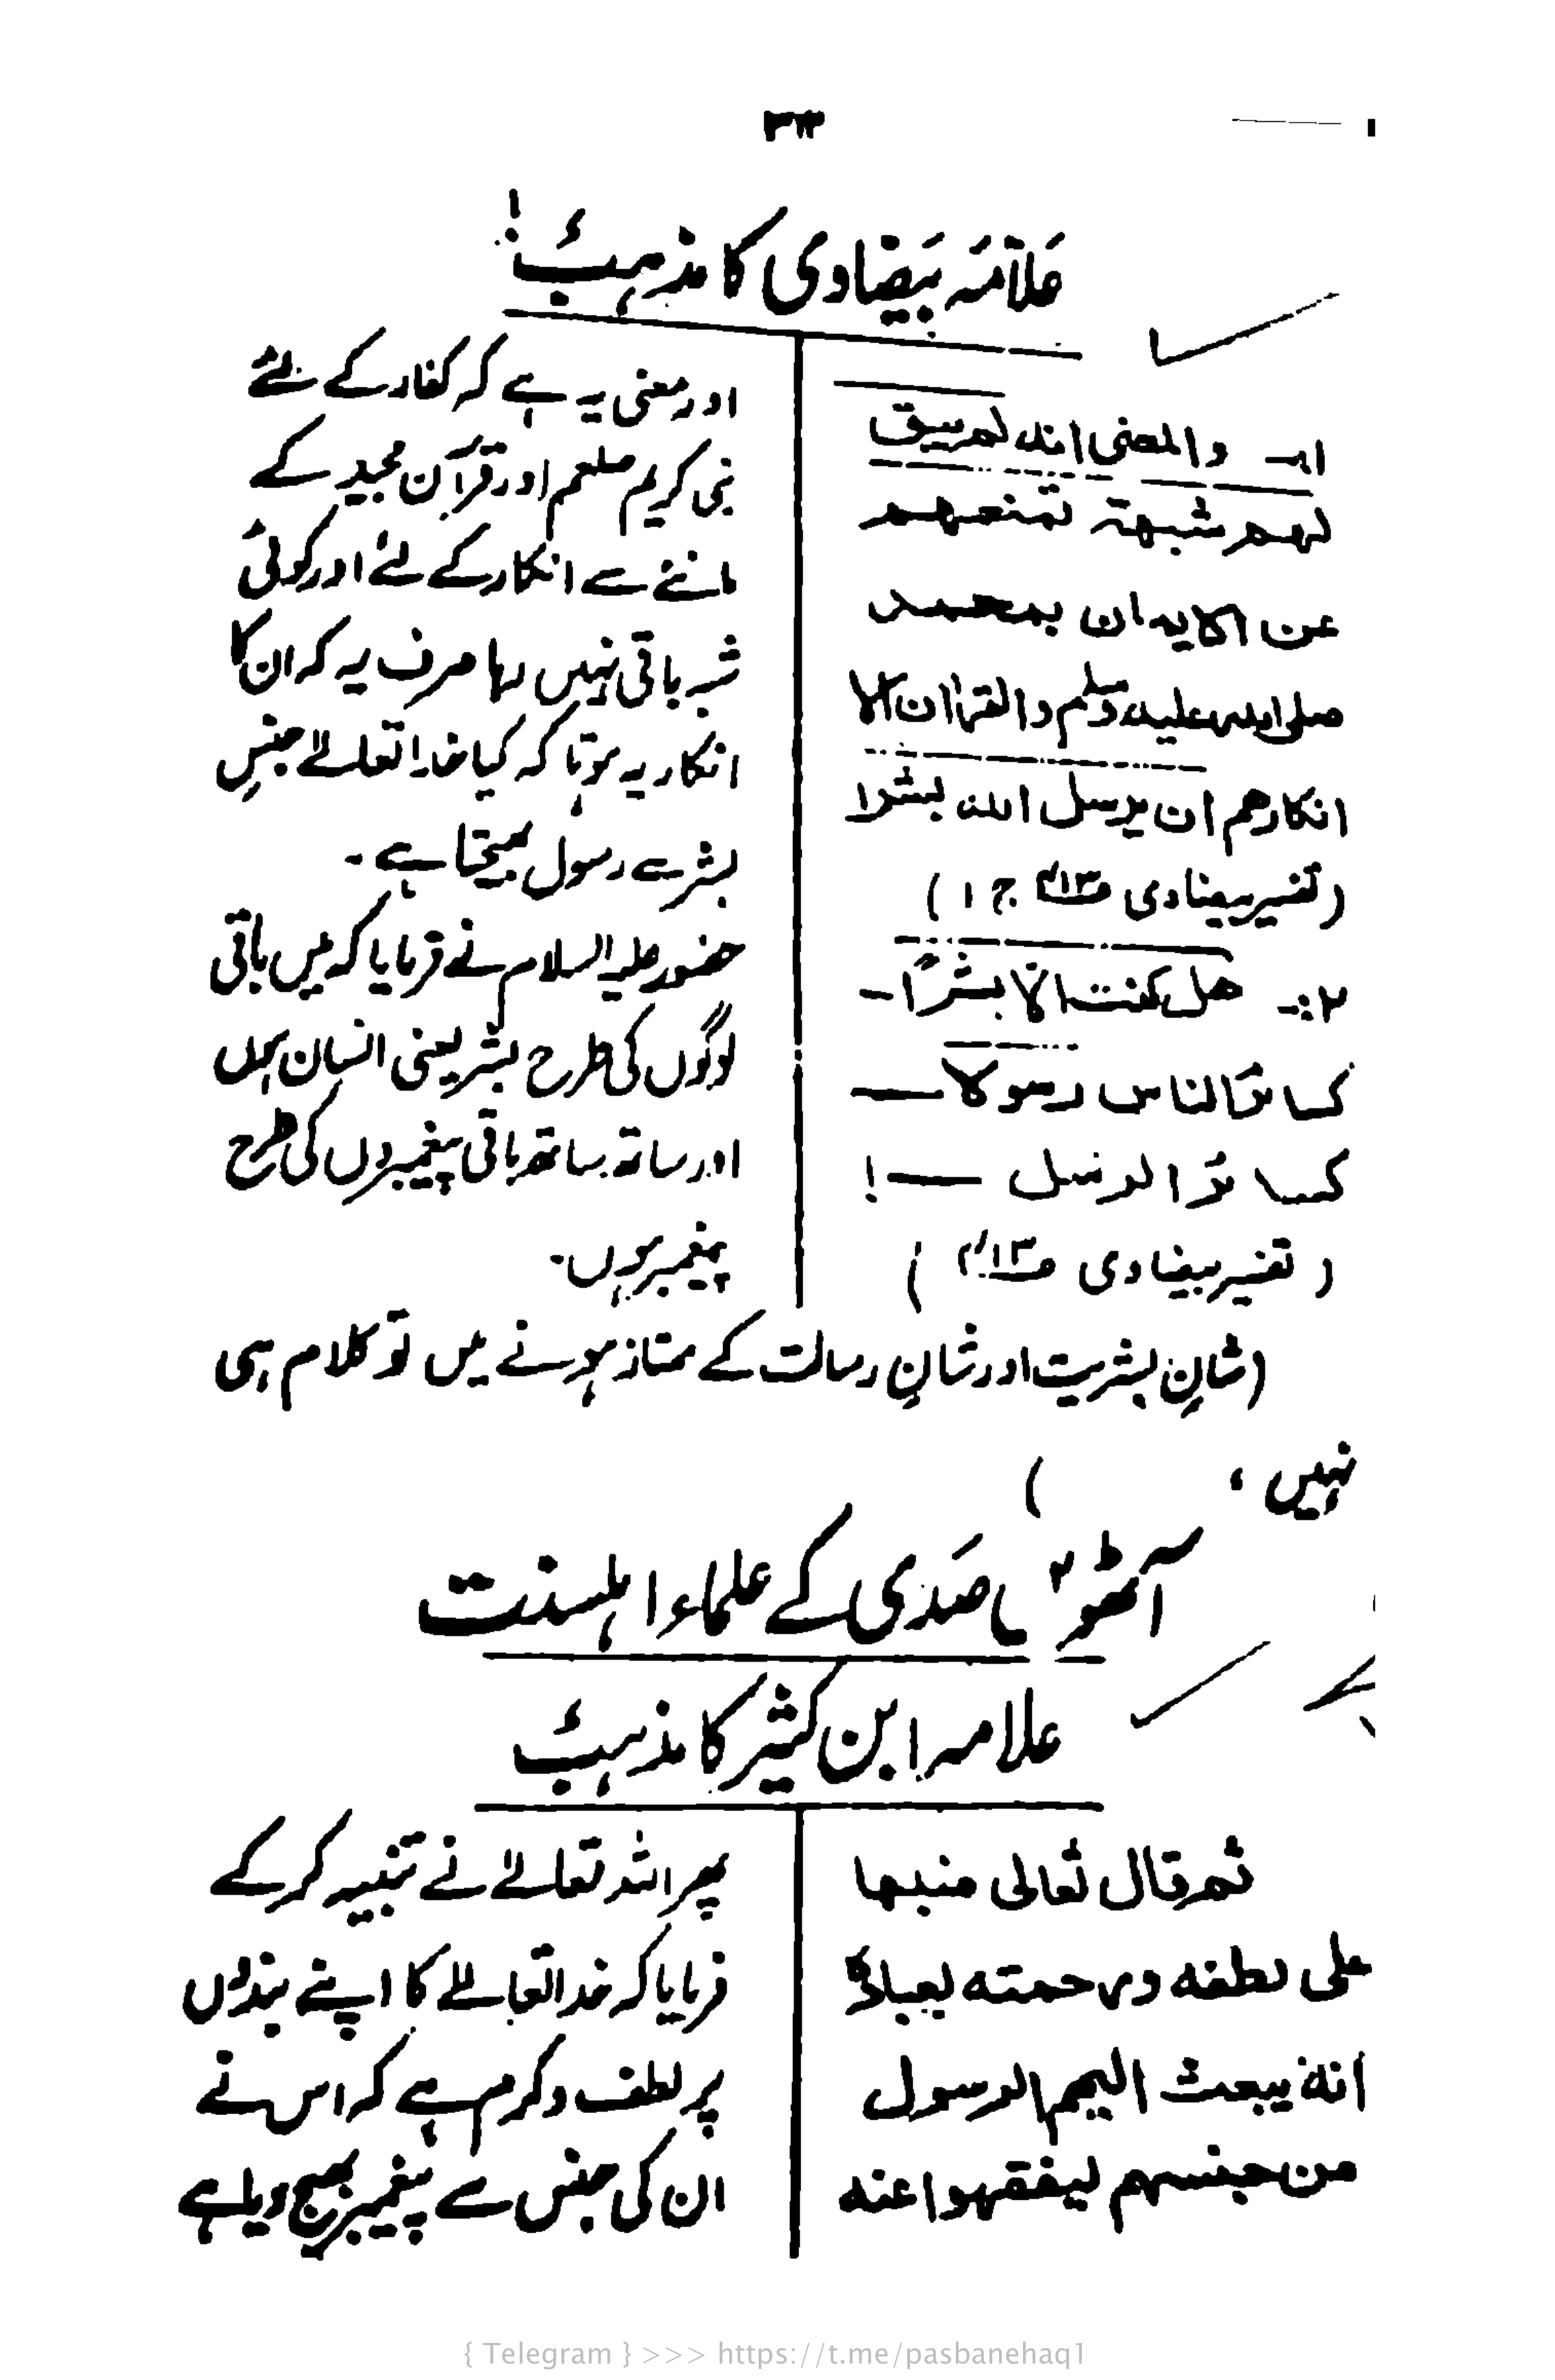 ۳۴
علامہ بیضاوی کا مذہب!
۱۔ والمعنی انہ لم یبق
لہم شبہۃ تمنعہم
عن الایمان بمحمد
صلی اللہ علیہ وسلم والقرآن الا
انکارھم ان یرسل اللہ بشرا
(تفسیر بیضاوی ج ۱)
۲۔ ھل کنت الا بشرًا۔
کسائر الناس رسولا —
کسائر الرسل — !
(تفسیر بیضاوی )
اور معنی یہ ہے کہ کفار کے لئے
نبی کریم صلعم اور قرآن مجید کے
ماننے سے انکار کے لئے اور کوئی
شبہ باقی نہیں رہا صرف یہ کہ ان کا
انکار یہ ہوتا کہ کیا خدا تعالےٰ جنسِ
بشر سے رسول بھیجتا ہے۔
حضور علیہ السلام نے فرمایا کہ میں باقی
لوگوں کی طرح بشر یعنی انسان ہوں
اور ساتھ ساتھ باقی پیغمبروں کی طرح
پیغمبر ہوں۔
(شانِ بشریت اور شانِ رسالت کے ممتاز ہونے میں تو کلام ہی
نہیں، )
آٹھویں صدی کے علماء اہلسنت
علامہ ابن کثیر کا مذہب
ثم قال تعالی منبھا
علی لطفہ ورحمتہ بعبادہ
انہ یبعث الیہم الرسول
من جنسہم لیفقہوا عنہ
پھر اللہ تعالےٰ نے تنبیہ کر کے
فرمایا کہ خدا تعالےٰ کا اپنے بندوں
پر لطف و کرم ہے کہ اس نے
ان کی جنس سے پیغمبر بھیج دیا ہے
{ Telegram } >>> https://t.me/pasbanehaq1